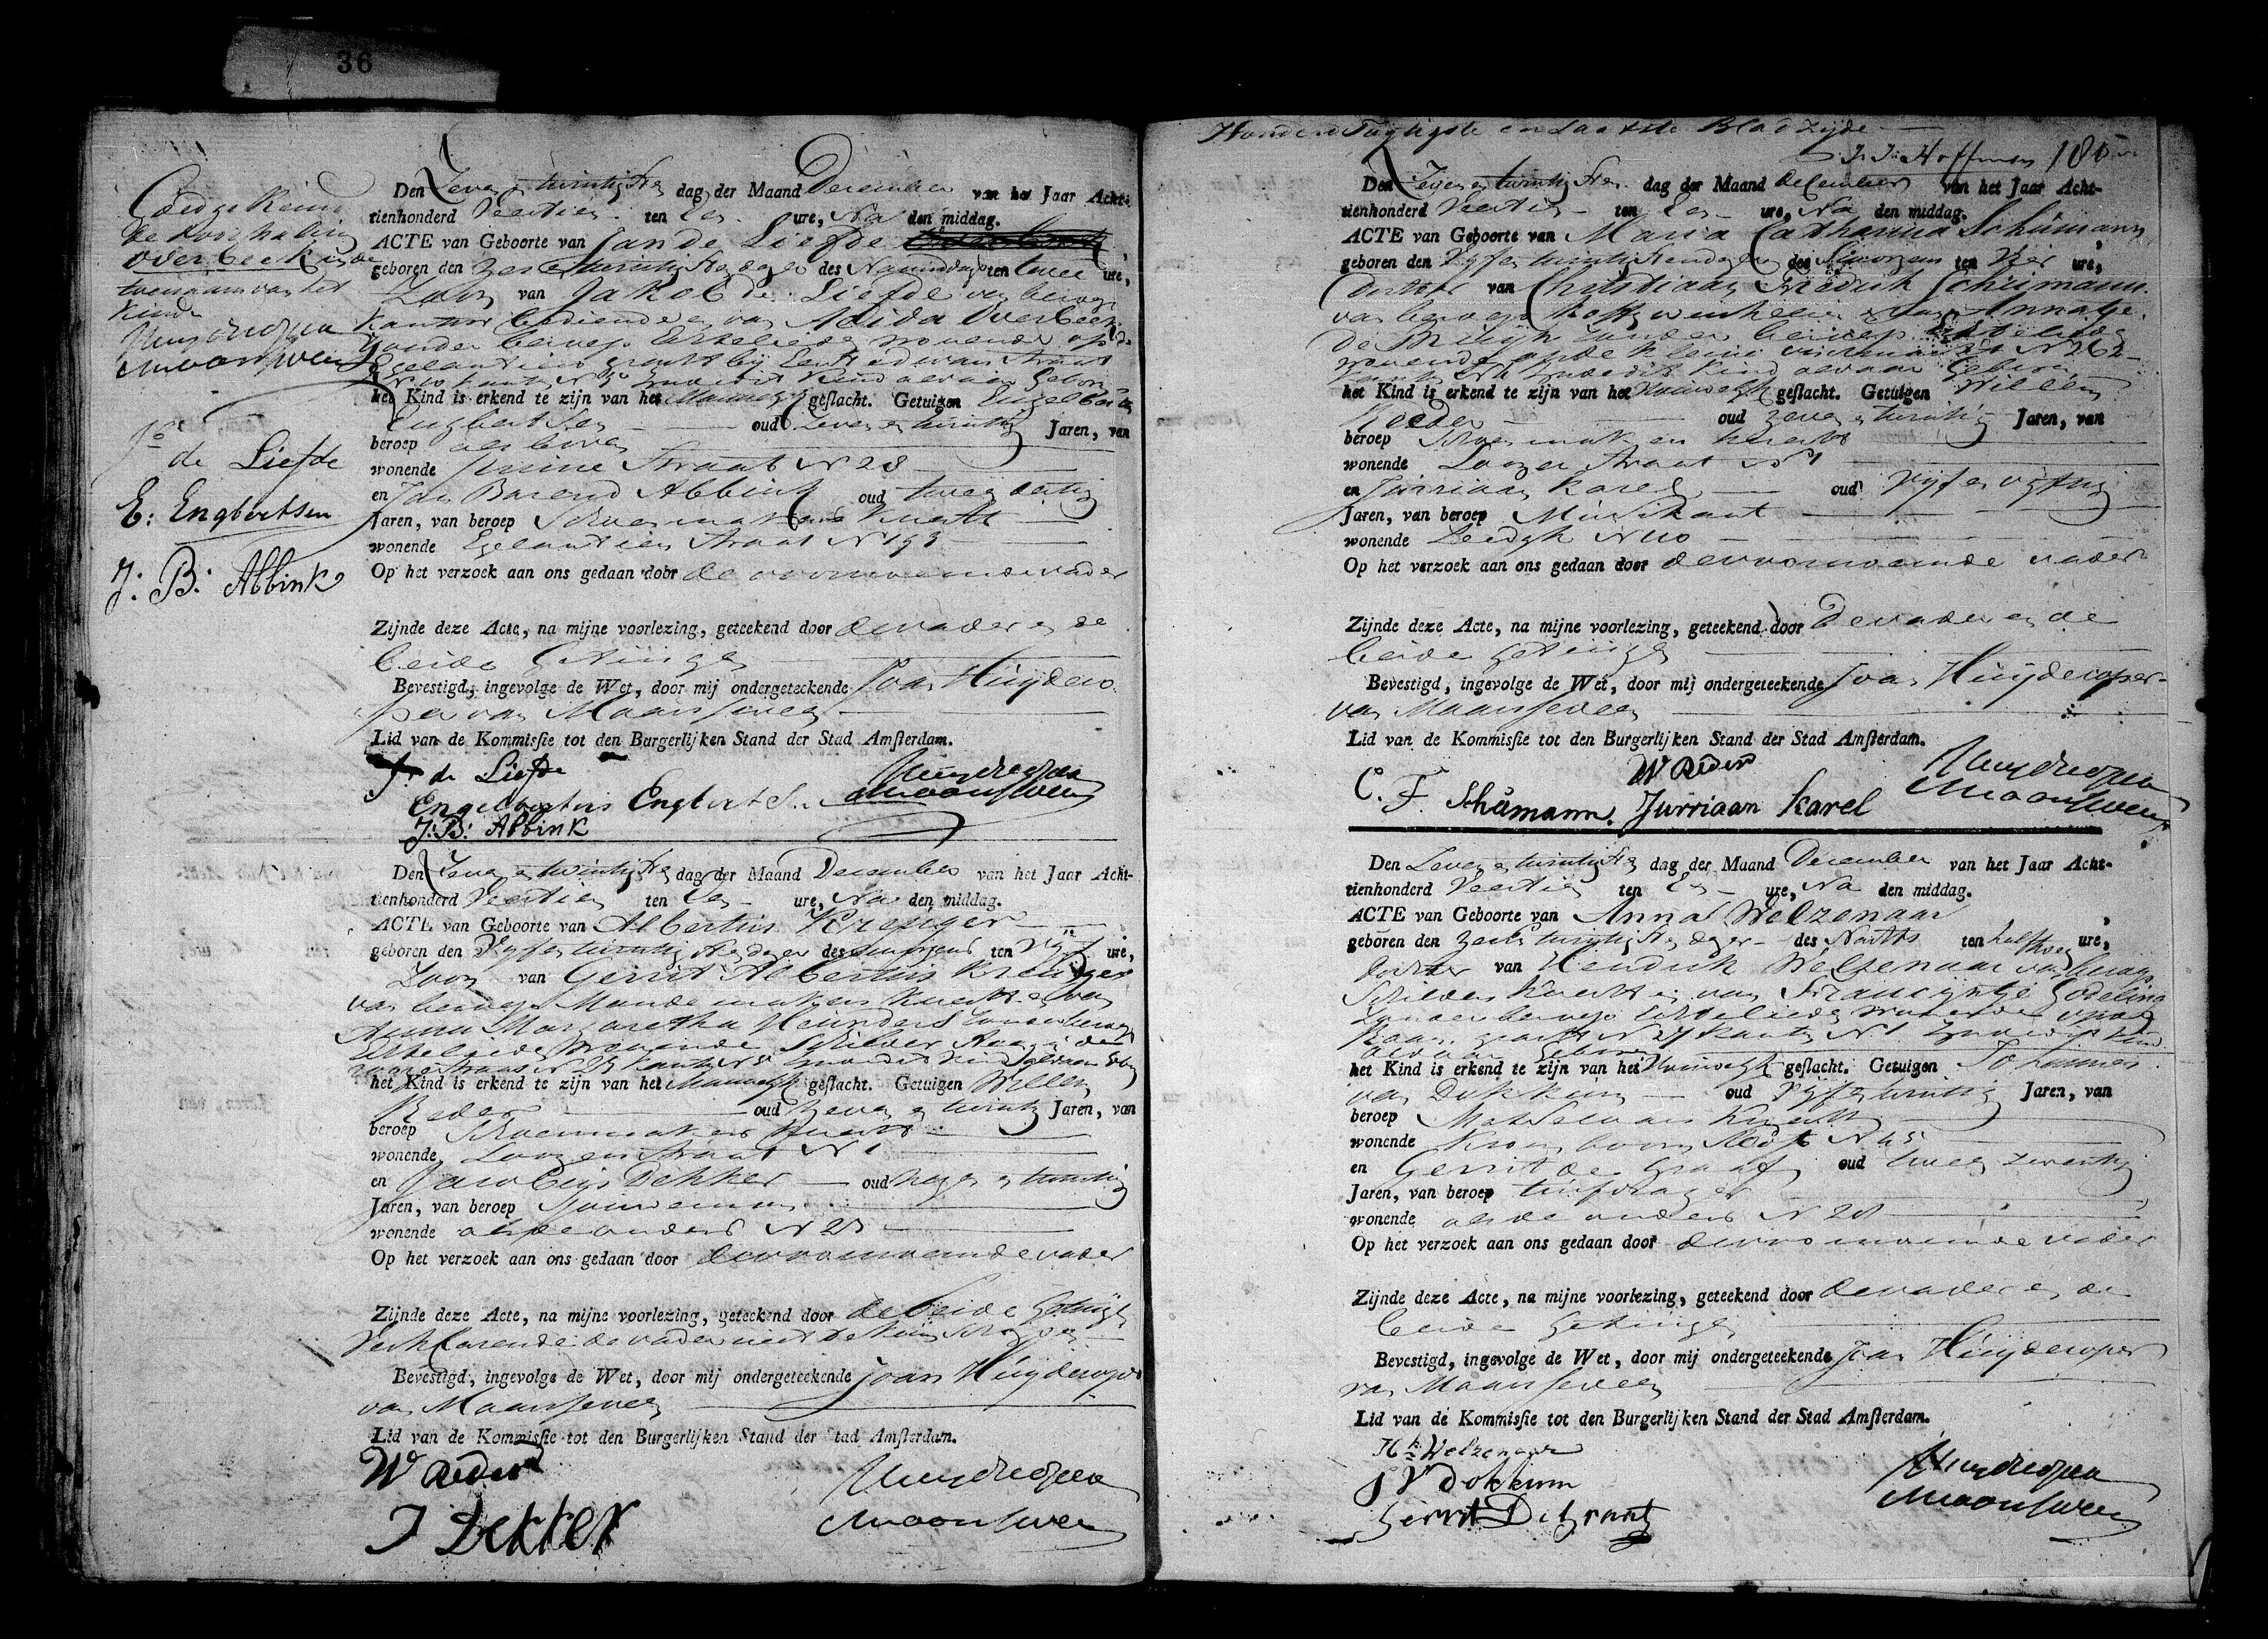 36
Goedgekeurd
de doorhaling
overbeek
toenaam van het
kind
Huydecoper
Maarsseveen
de Liefde
E: Engbertsen
J: B: Abbink
Den Zeven en twintigsten dag der Maand December van het Jaar Acht-
tienhonderd Veertien ten Een ure, Na den middag.
ACTE van Geboorte van Jan de Liefde
geboren den Zes en twintigsten dezer des Namiddags ten twee ure,
Zoon van Jakob de Liefde van beroep
kantoor bediende en van Alida Overbeek
zonder beroep Echtelieden wonende op de
Egelantiers gracht bij
kant N dit Kind aldaar Geboren
het Kind is erkend te zijn van het Mannelijk geslacht. Getuigen Engelbertus
Engbertsen oud Zeven en twintig Jaren, van
beroep als boven
wonende straat N 28
en Jan Barend Abbink oud twee en dertig
Jaren, van beroep Schoenmakers knecht
wonende Egelantiers straat N 193
Op het verzoek aan ons gedaan door de voornoemde vader
Zijnde deze Acte, na mijne voorlezing, geteekend door de vader en de
beide Getuigen
Bevestigd, ingevolge de Wet, door mij ondergeteekende Joan Huydeco
per van Maarsseveen
Lid van de Kommissie tot den Burgerlijken Stand der Stad Amsterdam.
J. de Liefde
Huydecoper
Engelbertus Engbertsen
Maarsseveen
J: B: Abbink
Den Zeven en twintigsten dag der Maand December van het Jaar Acht-
tienhonderd Veertien ten Een ure, Na den middag.
ACTE van Geboorte van Albertus Kreuger
geboren den Vyf en twintigsten dezer des smorgens ten vyf ure,
Zoon van Gerrit Albertus Kreuger
van beroep Mandemakers knecht en van
Anna Margaretha Reinders zonder beroep
Echtelieden wonende
straat N 25 kant N dit Kind aldaar Geb
het Kind is erkend te zijn van het Mannelijk geslacht. Getuigen Willem
Reder oud zeven en twintig Jaren, van
beroep Schoenmakers knecht
wonende Looyer straat N 1
en Jacobus Dekker oud negen en twintig
Jaren, van beroep Sjouwerman
wonende als de andere N 25
Op het verzoek aan ons gedaan door de voornoemde vader
Zijnde deze Acte, na mijne voorlezing, geteekend door de beide Getuigen
Verklarende de vader niet te kunnen schryven
Bevestigd, ingevolge de Wet, door mij ondergeteekende Joan Huydecoper
van Maarsseveen
Lid van de Kommissie tot den Burgerlijken Stand der Stad Amsterdam.
W Reder
Huydecoper
J Dekker
Maarsseveen
Honderd Tagtigste en Laatste Bladzyde
Hoffman 180
Den Zeven en twintigsten dag der Maand December van het Jaar Acht-
tienhonderd Veertien ten Een ure, Na den middag.
ACTE van Geboorte van Maria Catharina Schumann,
geboren den Vyf en twintigsten dezer des Smorgens ten Vier ure,
Dochter van Christiaan Fredrik Schumann
van beroep Koffy en van Annatje
de zonder beroep Echtelieden
wonende op de kleine N 262
dit Kind aldaar Geboren
het Kind is erkend te zijn van het Vrouwelyk geslacht. Getuigen Willem
Reeder oud zeven en twintig Jaren, van
beroep Schoenmakers knecht
wonende Looyer straat N 1
en Jurriaan Karel oud Vyf en vyftig
Jaren, van beroep Musikant
wonende Zeedyk N 110
Op het verzoek aan ons gedaan door de voornoemde vader
Zijnde deze Acte, na mijne voorlezing, geteekend door De vader en de
beide getuigen
Bevestigd, ingevolge de Wet, door mij ondergeteekende Joan Huydecoper
van Maarsseveen
Lid van de Kommissie tot den Burgerlijken Stand der Stad Amsterdam.
W Reder
Huydecoper
C. F. Schumann. Jurriaan Karel
Maarsseveen
Den Zeven en twintigsten dag der Maand December van het Jaar Acht-
tienhonderd Veertien ten Een ure, Na den middag.
ACTE van Geboorte van Anna Welzenaar,
geboren den Zes en twintigsten dezer des Nachts ten half twee ure,
Dochter van Hendrik Welzenaar van beroep
Schilders knecht en van Francyntje Godelina
zonder beroep Echtelieden wonende op de
gracht N 27 kant N 1 dit kind
aldaar Geboren
het Kind is erkend te zijn van het Vrouwelyk geslacht. Getuigen Johannes
van Dokkum oud Vyf en twintig Jaren, van
beroep Metselaars Knecht
wonende Kroom boom sloot N 45
en Gerrit de Graaf oud twee en zeventig
Jaren, van beroep turfdrager
wonende als de andere N 20
Op het verzoek aan ons gedaan door de voornoemde vader
Zijnde deze Acte, na mijne voorlezing, geteekend door de vader en de
beide Getuigen
Bevestigd, ingevolge de Wet, door mij ondergeteekende Joan Huydecoper
van Maarsseveen
Lid van de Kommissie tot den Burgerlijken Stand der Stad Amsterdam.
Hk Welzenaar
J V Dokkum
Huydecoper
Gerrit De Graaf
Maarsseveen